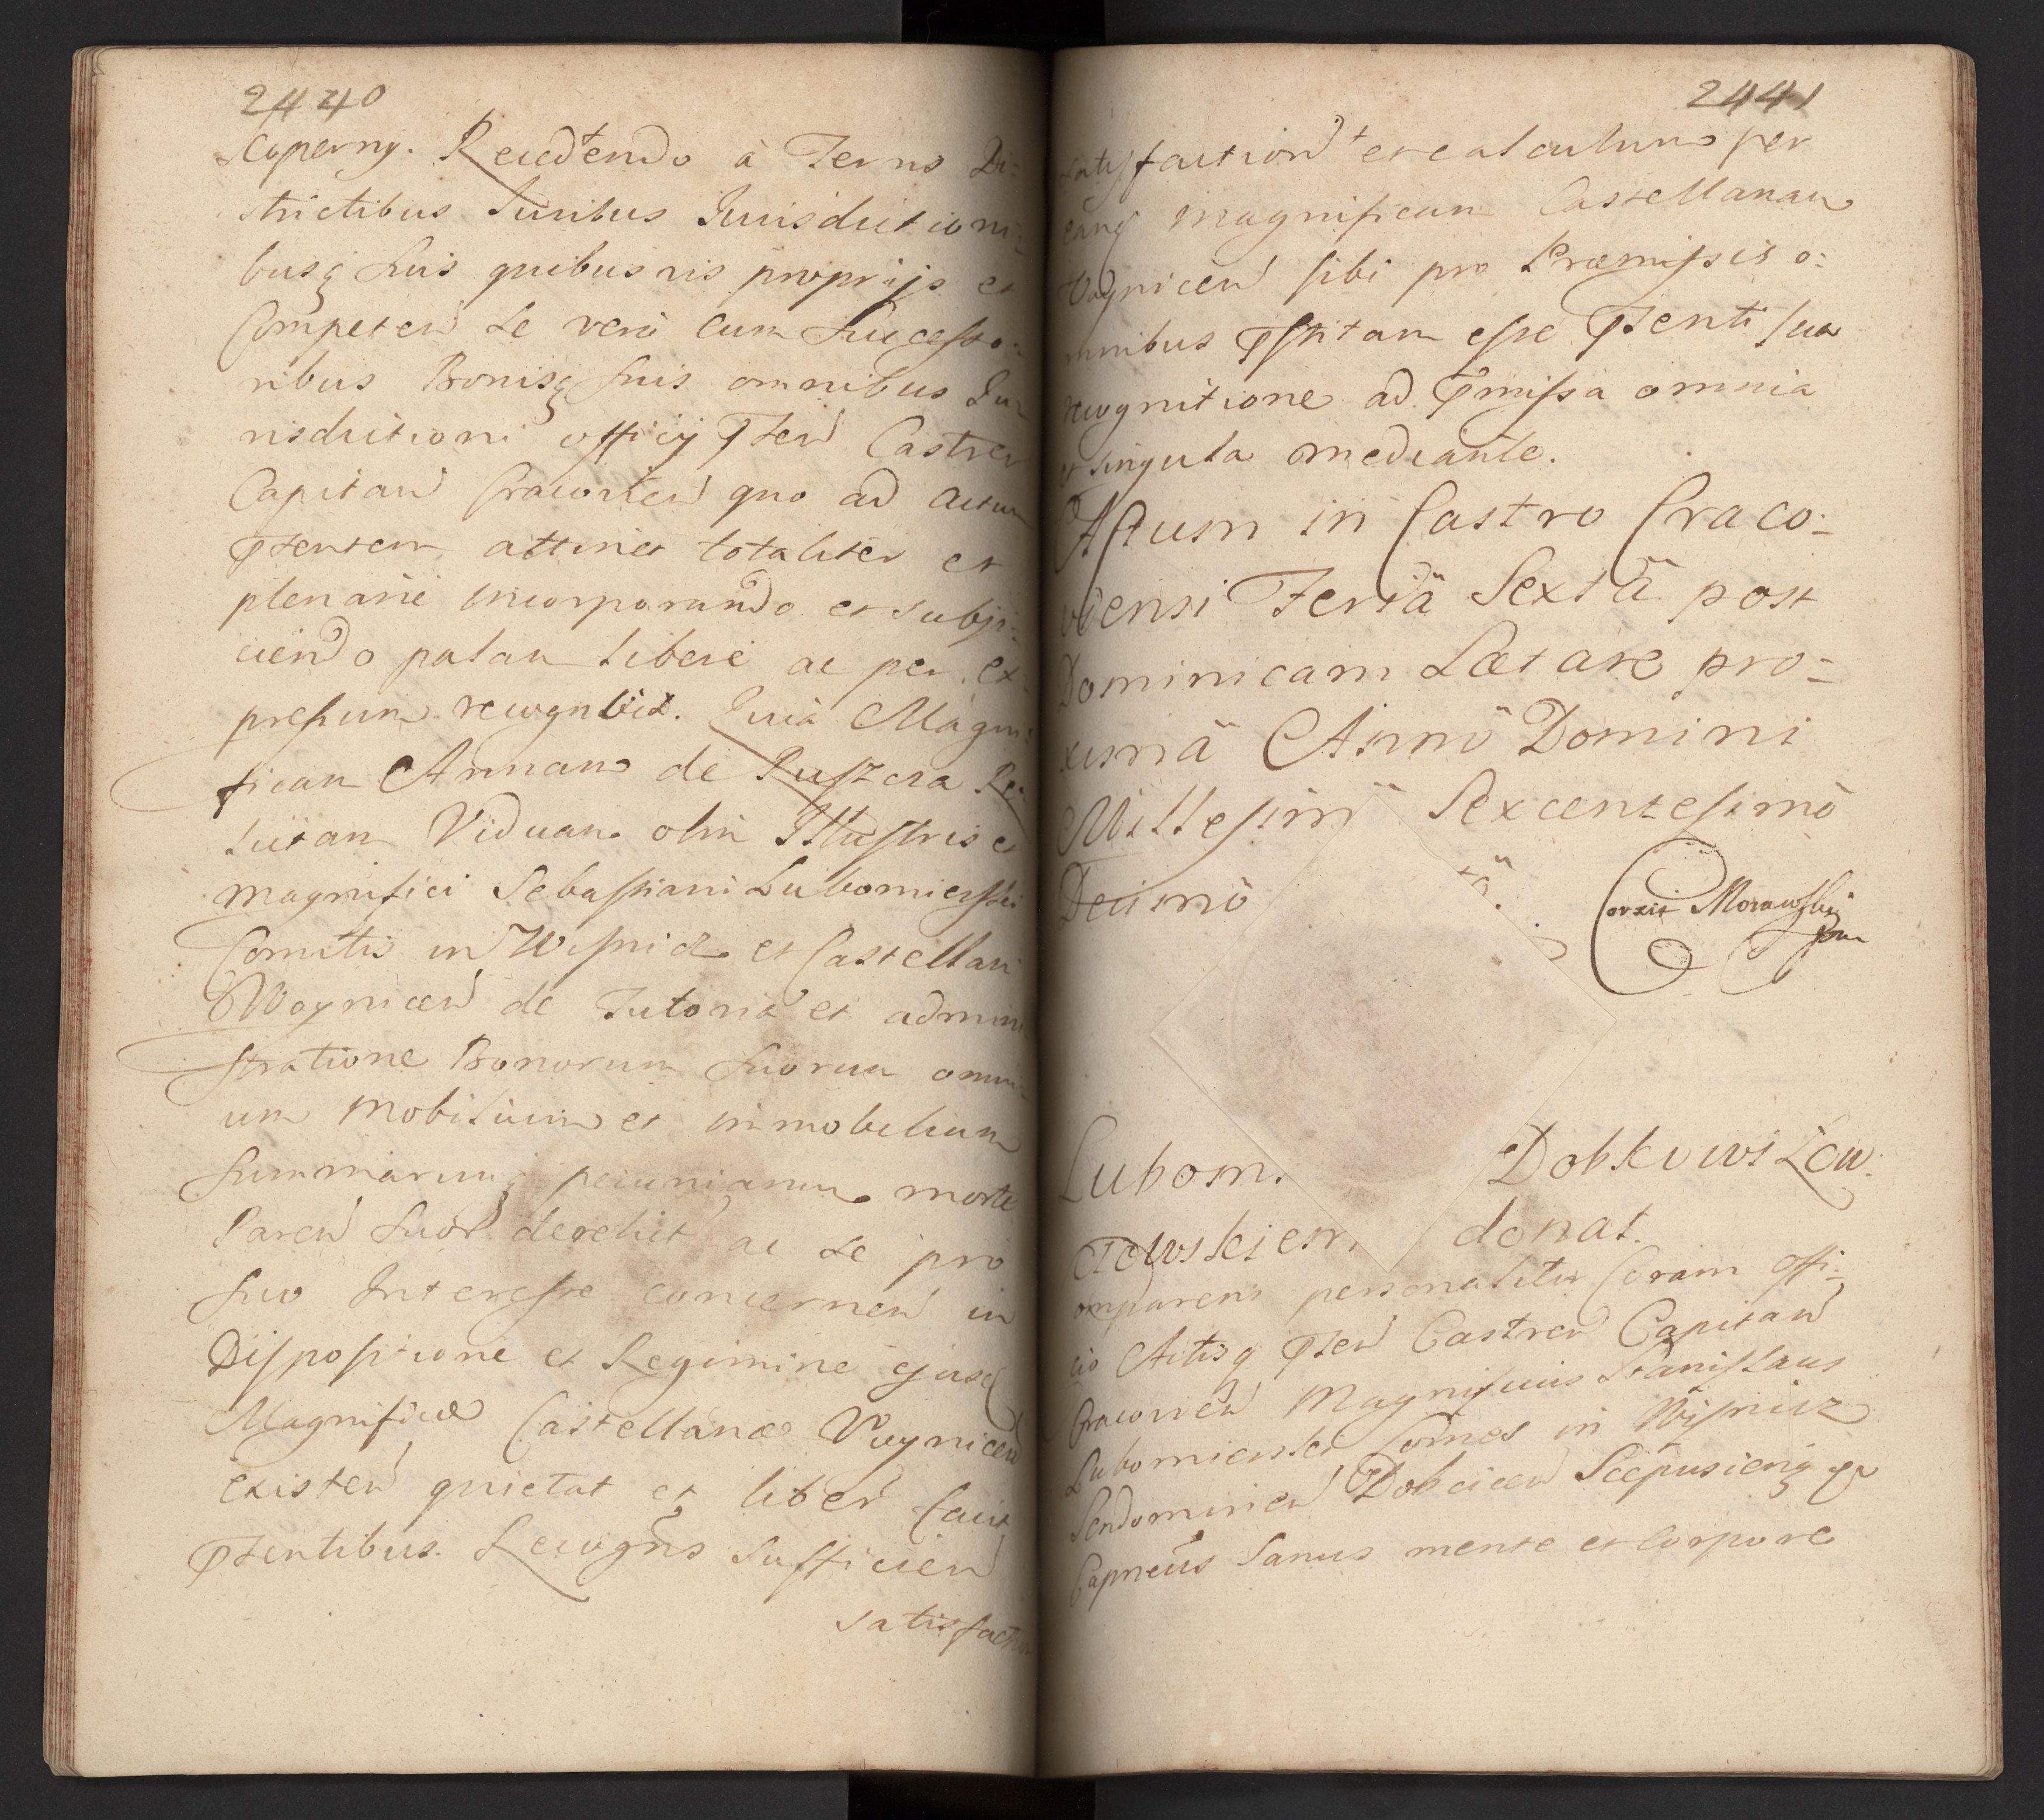 2440
scoperny. Recedendo à Terris Di=
strictibus Juribus Jurisdictioni=
busq suis quibusvis proprijs et
Competen Se vero cum Successo=
ribus Bonisq suis omnibus Ju=
risdictioni officij Pnten Castren
Capitan Cracovien quo ad actum
pntentem attinet totaliter et
plenarie incorporando et subji=
ciendo palam libere ac per ex=
pressum recognovit. Quia Magni=
ficam Annam de Ruszcza
Viduam olim Illustris et
Magnifici Sebastiani Lubomierski
Comitis in Wisnicz et Castellani
Woynicen de Tutoria et admini
stratione Bonorum Suorum omni
um Mobilium et immobilium
Summarumq pecuniarum morte
Paren Suor derelict ac Se pro
Suo Interesse concernen in
Dispositione et Regimine ejusd
Magnificæ Castellanæ Voynicen
existen quietat et liber facit
pntentibus. Recogns Sufficien
satisfaction
2441
satisfaction et calculum per
eand Magnificam Castellanam
Voynicen sibi pro Præmissis o=
mnibus esse pntenti sua
recognitione ad pmissa omnia
et singula mediante.
Actum in Castro Craco=
viensi Feriä Sextä post
Dominicam Lætare pro=
ximä Anno Domini
Millesimo Sexcentesimö
Decimö
Corxit Morawski
Lubom. Dobkowi
donat.
omparens personaliter Coram offi=
cio Actisq pnten Castren Capitan
Cracovien Magnificus Stanislaus
Lubomierski Comes in Wisnicz
Sendomirien Dobcicen Scepusienq
Capneus Sanus mente et Corpore